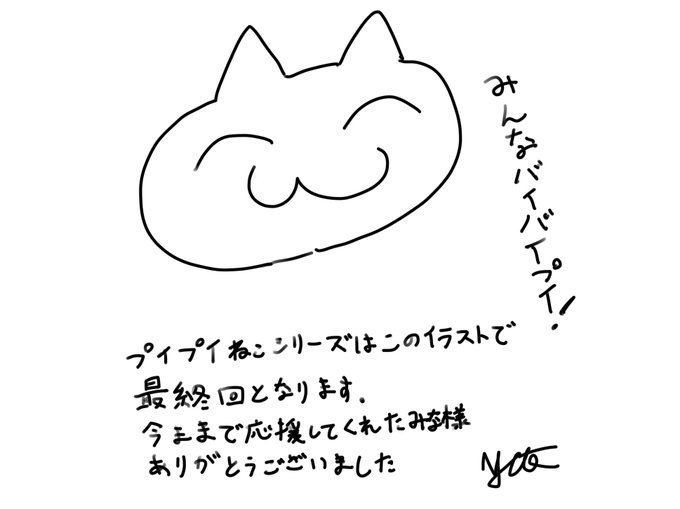 みんなバイバイプイ!
プイプイねこシリーズはこのイラストで
最終回となります.
今まで応援してくれたみな様
ありがとうございました